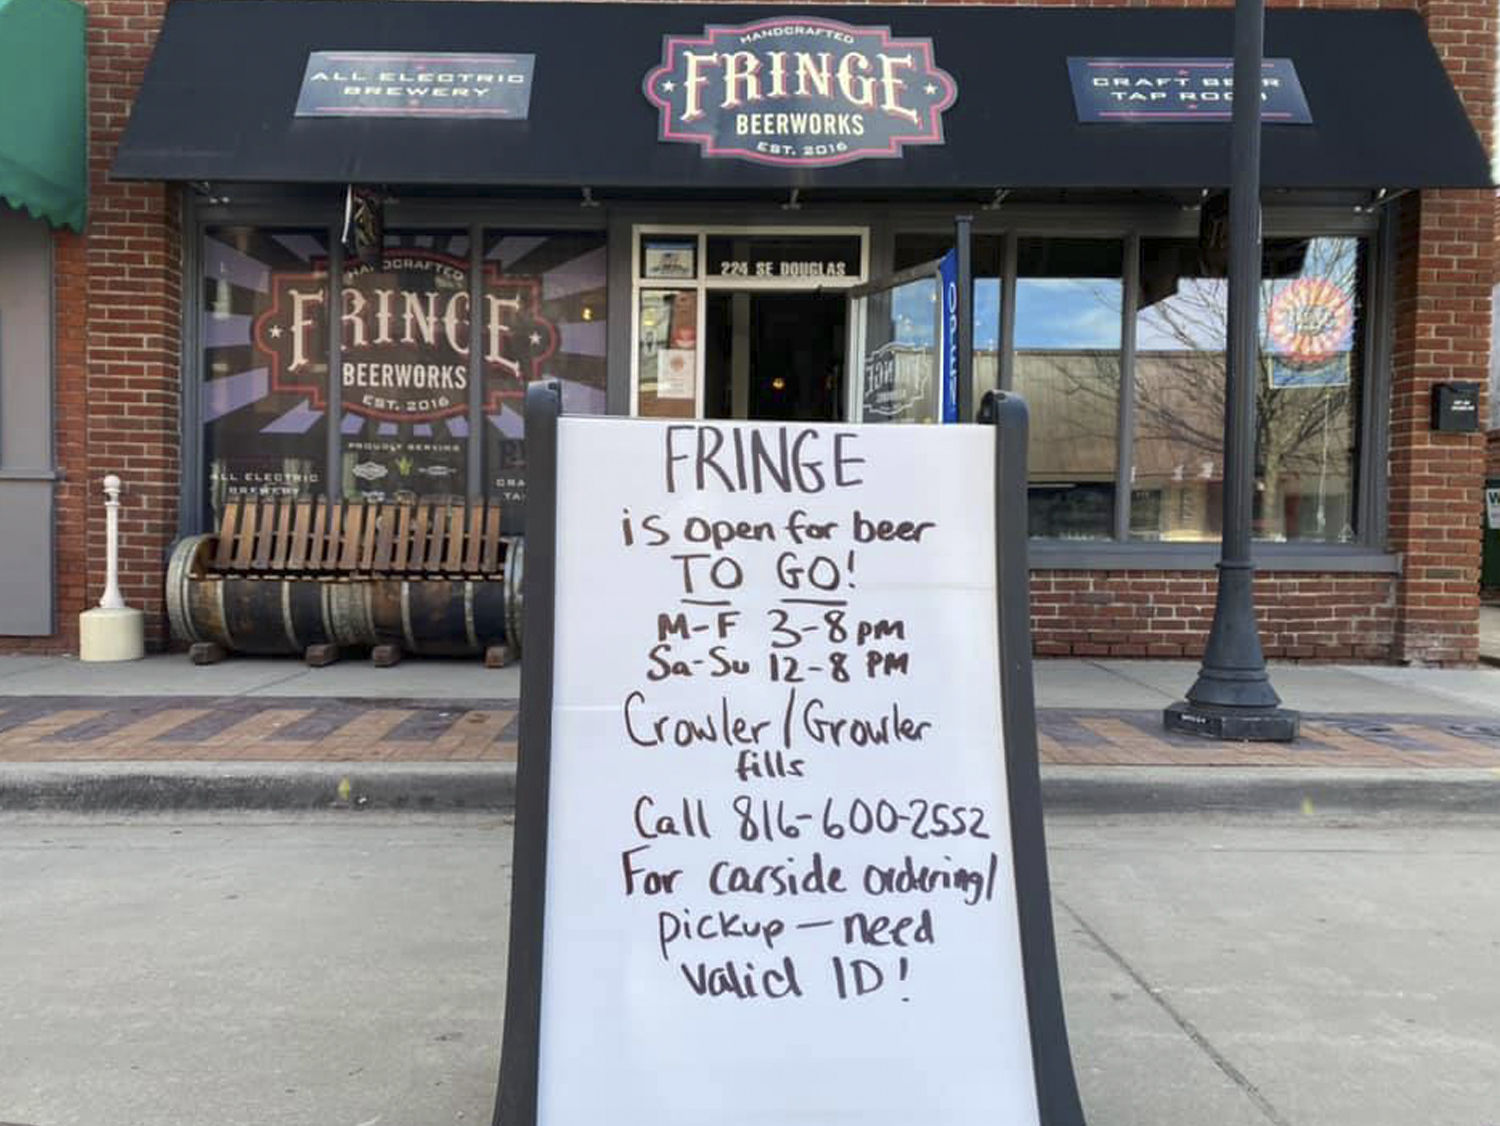 HANDCRAFTED
FRINGE
BEERWORKS
EST. 2016
ALL ELECTRIC
BREWERY
CRAFT BEER
TAP ROOM
224 SE DOUGLAS
OPEN
HANDCRAFTED
FRINGE
BEERWORKS
EST. 2016
PROUDLY SERVING
ALL ELECTRIC
BREWERY
FRINGE
is open for beer
TO GO!
M-F 3-8 pm
Sa-Su 12-8 PM
Crowler/Growler
fills
Call 816-600-2552
For carside ordering/
pickup - need
valid ID!